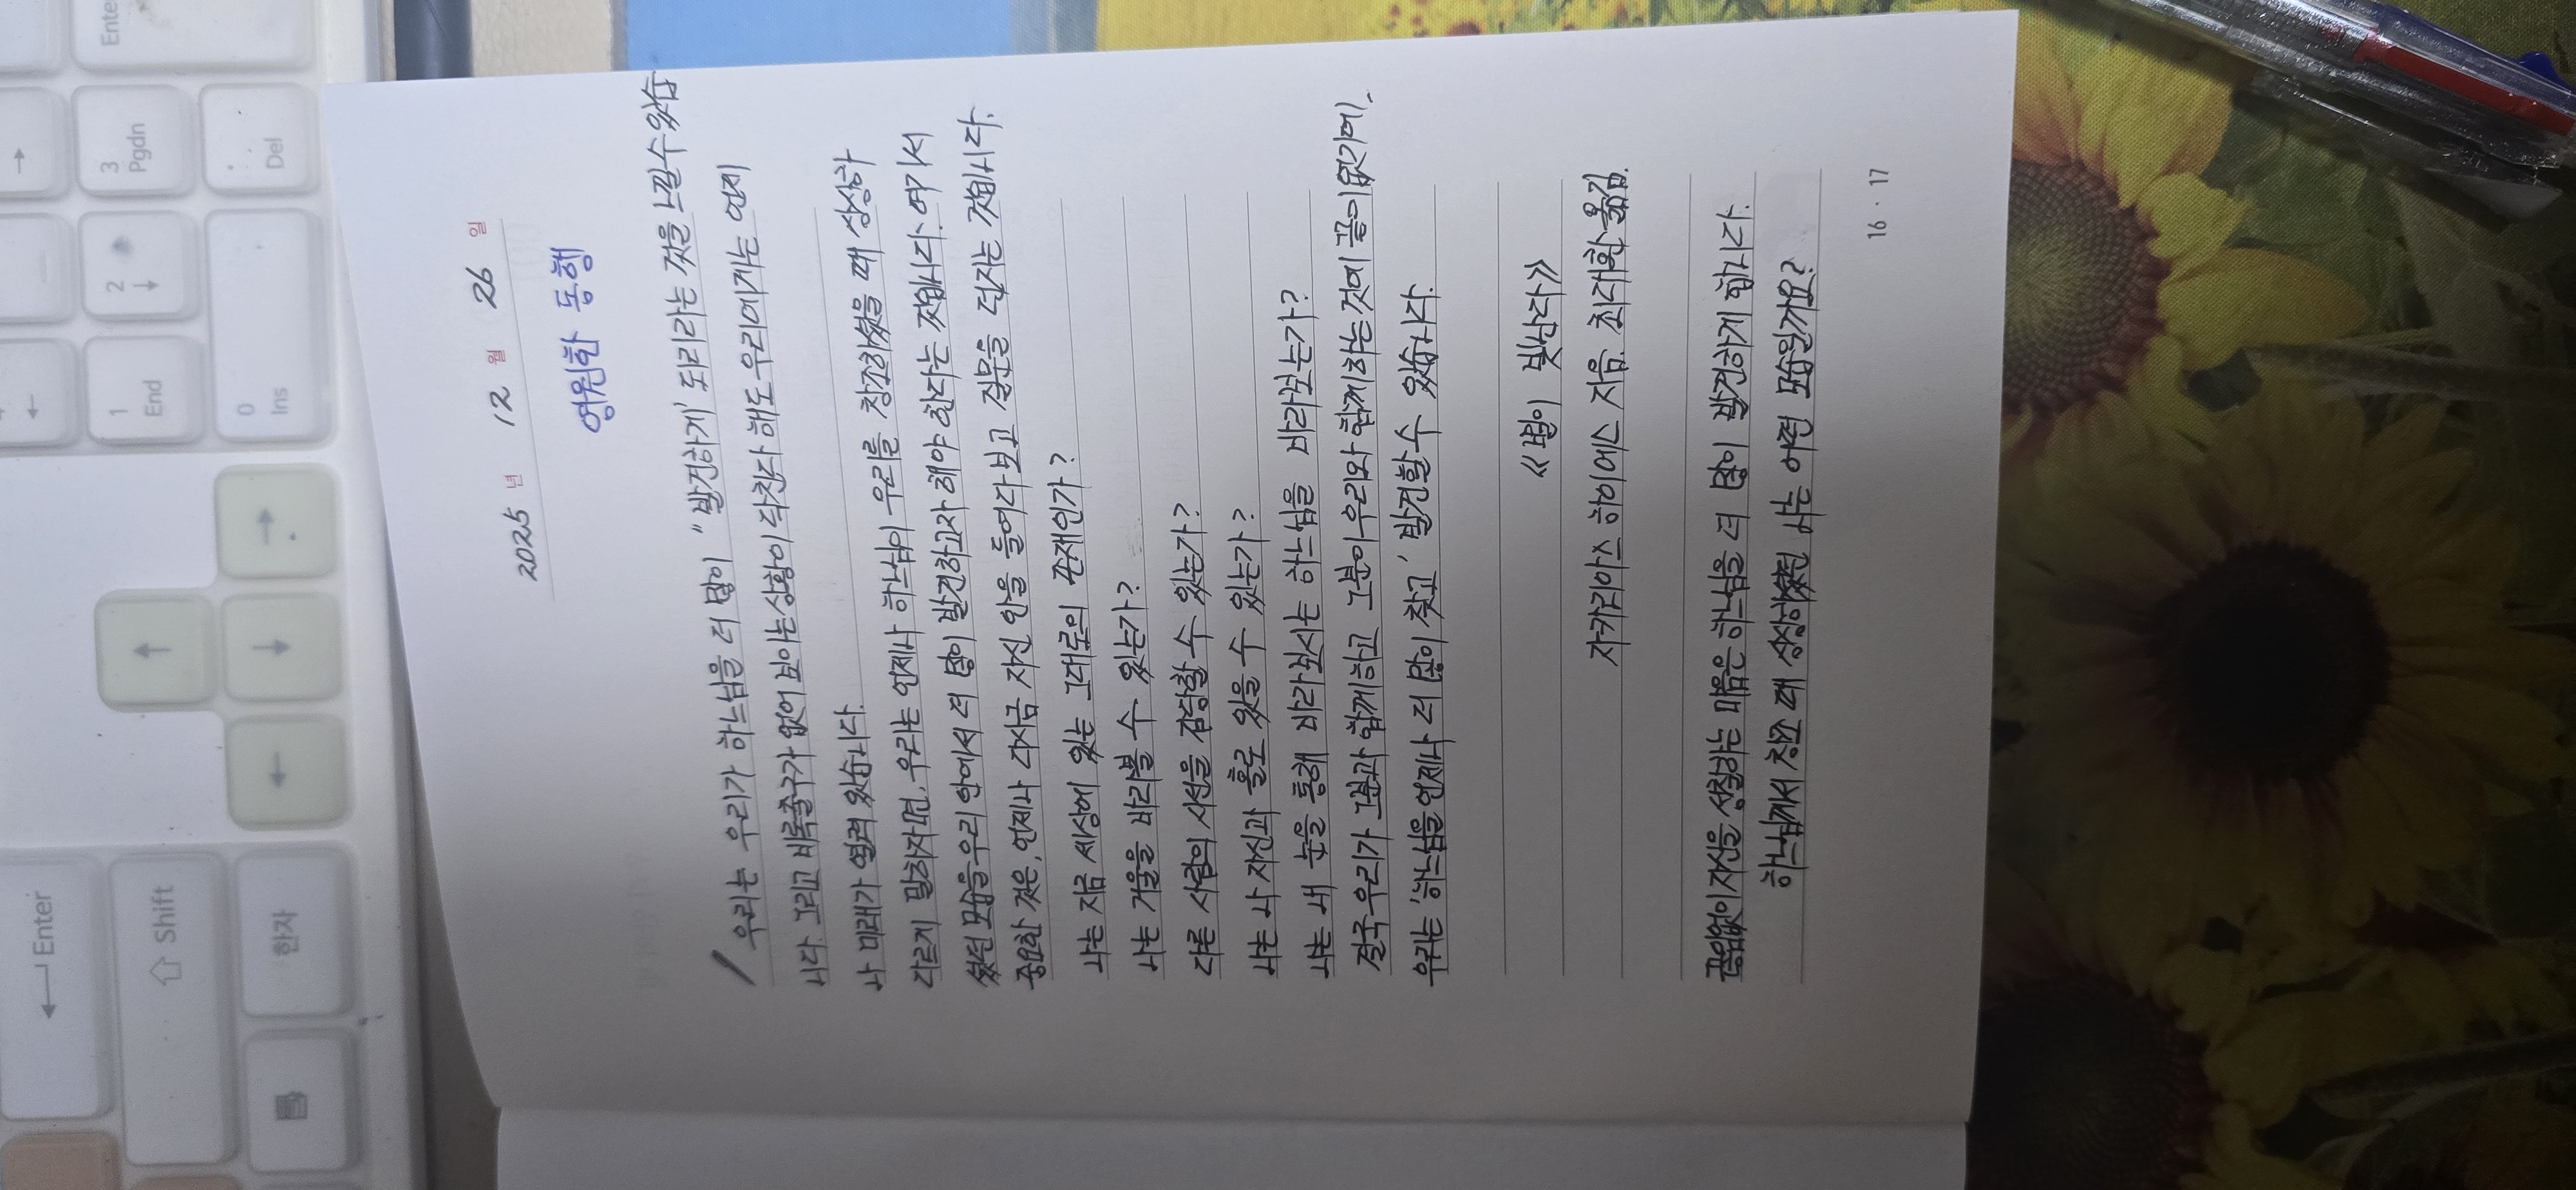 2025 년 12 월 26 일
영원한 동행
우리는 우리가 하느님을 더 많이 "발견하게" 되리라는 것을 느낄수있습
니다. 그리고 비록출구가 없어 보이는상황이 닥친다 해도 우리에게는 언제
나 미래가 열려 있습니다.
다르게 말하자면, 우리는 언제나 하느님이 우리를 창조하셨을 때 상상하
셨던 모습을 우리 안에서 더 많이 발견하고자 해야 한다는 것입니다. 여기서
중요한 것은, 언제나 다시금 자신 안을 들여다 보고 질문을 던지는 것입니다.
나는 지금 세상에 있는 그대로의 존재인가?
나는 거울을 바라볼 수 있는가?
다른 사람의 시선을 감당할 수 있는가?
나는 나 자신과 홀로 있을 수 있는가?
나는 내 눈을 통해 바라보시는 하느님을 바라보는가?
결국 우리가 그분과 함께하고 그분이 우리와 함께하는 것에 끝이없기에,
우리는 '하느님을 언제나 더 많이 찾고' 발견할 수 있습니다.
《별이 빛난다》
자카리아스 하이에스 지음. 최대환 옮김.
끊임없이 자신을 성찰하는 마음은 하느님을 더 많이 발견하게 합니다.
하느님께서 창조 때 상상하셨던 나는 어떤 모습일까요?
16 · 17
← Enter
⇧ Shift
한자
Enter
3
Pgdn
.
Del
2
↓
1
End
0
Ins